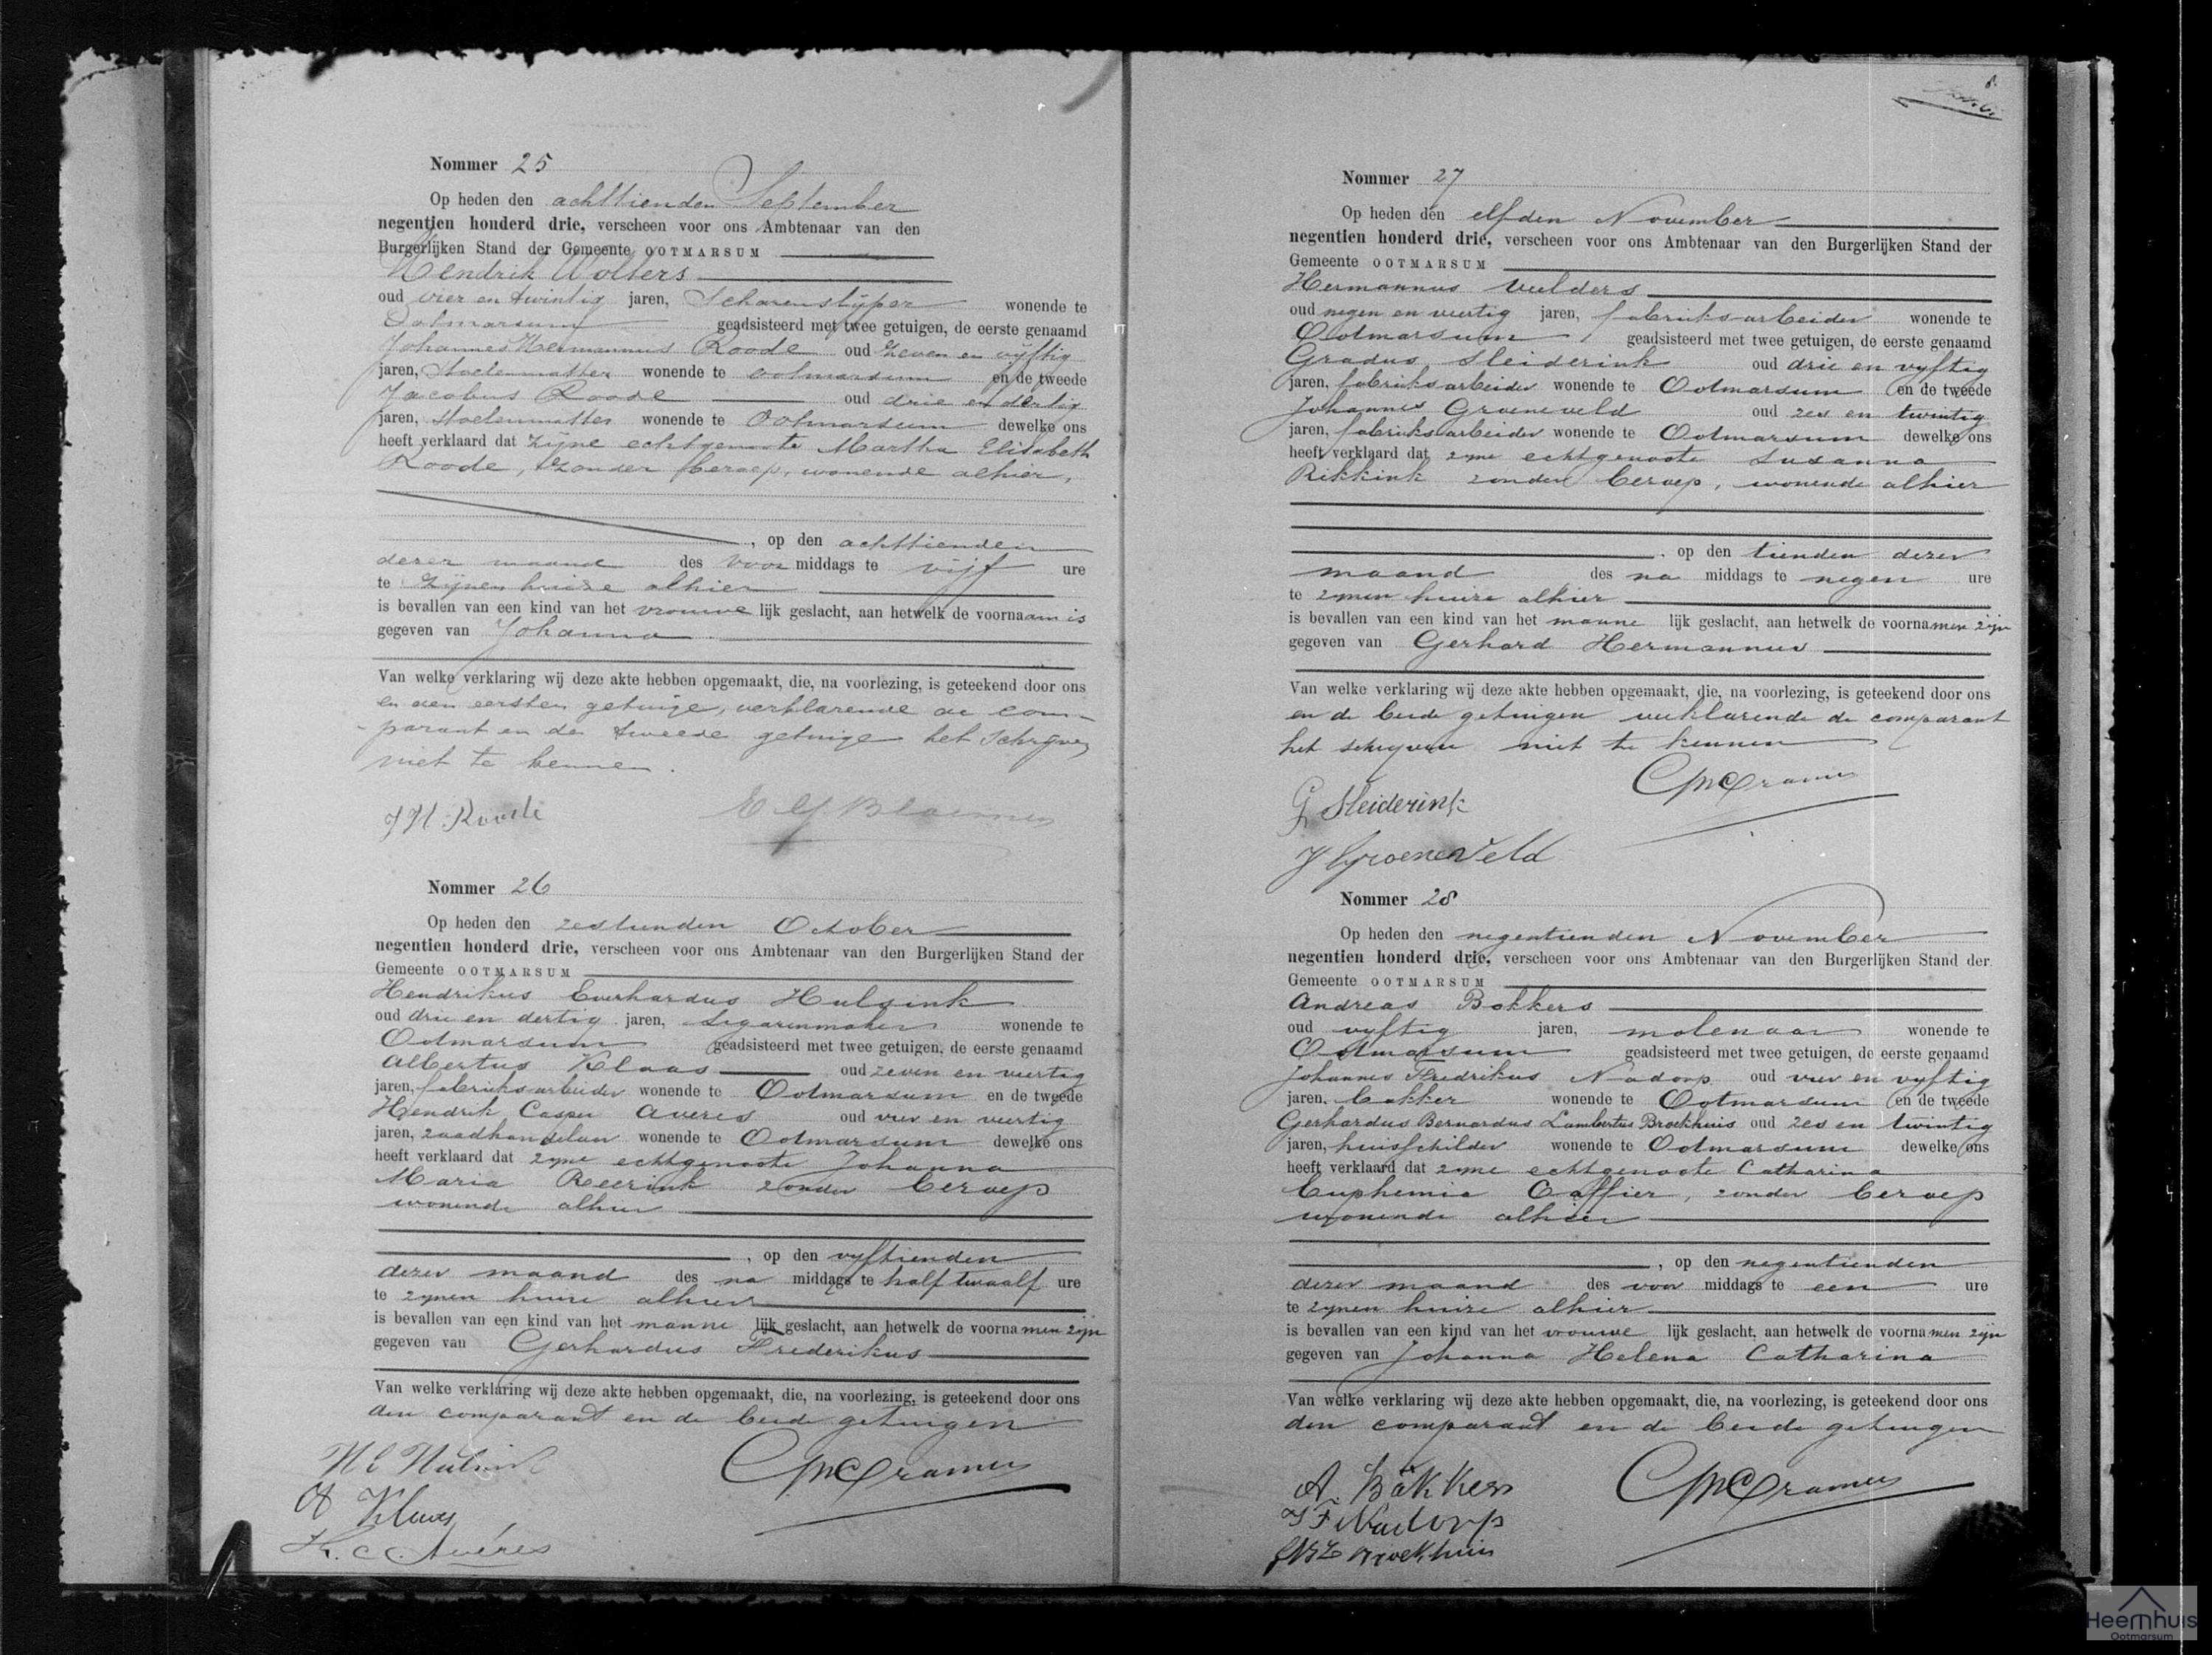 Nommer 25
Op heden den achttienden September
negentien honderd drie, verscheen voor ons Ambtenaar van den
Burgerlijken Stand der Gemeente OOTMARSUM
Hendrik Wolters
oud vier en twintig jaren, Scharenslijper wonende te
Ootmarsum geadsisteerd met twee getuigen, de eerste genaamd
Johannes Hermannus Roode oud zeven en vijftig
jaren, Stoelenmatter wonende te Ootmarsum en de tweede
Jacobus Roode oud drie en dertig
jaren, stoelenmatter wonende te Ootmarsum dewelke ons
heeft verklaard dat zijne echtgenoote Martha Elisabeth
Roode, zonder beroep, wonende alhier,
, op den achttienden
dezer maand des voor middags te vijf ure
te zijnen huize alhier
is bevallen van een kind van het vrouwe lijk geslacht, aan hetwelk de voornaam is
gegeven van Johanna
Van welke verklaring wij deze akte hebben opgemaakt, die, na voorlezing, is geteekend door ons
en den eersten getuige, verklarende de com-
parant en de tweede getuige het schrijven
niet te kennen.
J H. Roode
Nommer 26
Op heden den zestienden October
negentien honderd drie, verscheen voor ons Ambtenaar van den Burgerlijken Stand der
Gemeente OOTMARSUM
Hendrikus Everhardus Hulsink
oud drie en dertig jaren, Sigarenmaker wonende te
Ootmarsum geadsisteerd met twee getuigen, de eerste genaamd
Albertus Klaas oud zeven en veertig
jaren, fabrieksarbeider wonende te Ootmarsum en de tweede
Hendrik Casper Averes oud vier en veertig
jaren, zaadhandelaar wonende te Ootmarsum dewelke ons
heeft verklaard dat zyne echtgenoote Johanna
Maria Reerink zonder beroep
wonende alhier
, op den vyftienden
dezer maand des na middags te half twaalf ure
te zynen huize alhier
is bevallen van een kind van het manne lijk geslacht, aan hetwelk de voorna men zijn
gegeven van Gerhardus Frederikus
Van welke verklaring wij deze akte hebben opgemaakt, die, na voorlezing, is geteekend door ons
den comparant en de beide getuigen
H E Hulsink
A Klaas
H. C. Avéres
Nommer 27
Op heden den elfden November
negentien honderd drie, verscheen voor ons Ambtenaar van den Burgerlijken Stand der
Gemeente OOTMARSUM
Hermannus Velders
oud negen en veertig jaren, fabrieksarbeider wonende te
Ootmarsum geadsisteerd met twee getuigen, de eerste genaamd
Gradus Sleiderink oud drie en vyftig
jaren, fabrieksarbeider wonende te Ootmarsum en de tweede
Johannes Groeneveld oud zes en twintig
jaren, fabrieksarbeider wonende te Ootmarsum dewelke ons
heeft verklaard dat zyne echtgenoote Susanna
Rikkink zonder beroep, wonende alhier
, op den tienden dezer
maand des na middags te negen ure
te zynen huize alhier
is bevallen van een kind van het manne lijk geslacht, aan hetwelk de voorna men zijn
gegeven van Gerhard Hermannus
Van welke verklaring wij deze akte hebben opgemaakt, die, na voorlezing, is geteekend door ons
en de beide getuigen verklarende de comparant
het schryven niet te kennen
G Sleiderink
J Groeneveld
Nommer 28
Op heden den negentienden November
negentien honderd drie, verscheen voor ons Ambtenaar van den Burgerlijken Stand der
Gemeente OOTMARSUM
Andreas Bökkers
oud vyftig jaren, molenaar wonende te
Ootmarsum geadsisteerd met twee getuigen, de eerste genaamd
Johannes Fredrikus Nadorp oud vier en vyftig
jaren, bakker wonende te Ootmarsum en de tweede
Gerhardus Bernardus Lambertus Broekhuis oud zes en twintig
jaren, huisschilder wonende te Ootmarsum dewelke ons
heeft verklaard dat zyne echtgenoote Catharina
Euphemia Caffier, zonder beroep
wonende alhier
, op den negentienden
dezer maand des voor middags te een ure
te zynen huize alhier
is bevallen van een kind van het vrouwe lijk geslacht, aan hetwelk de voorna men zijn
gegeven van Johanna Helena Catharina
Van welke verklaring wij deze akte hebben opgemaakt, die, na voorlezing, is geteekend door ons
den comparant en de beide getuigen
A. Bökkers
J F Nadorp
GBL Broekhuis
Heemhuis
Ootmarsum